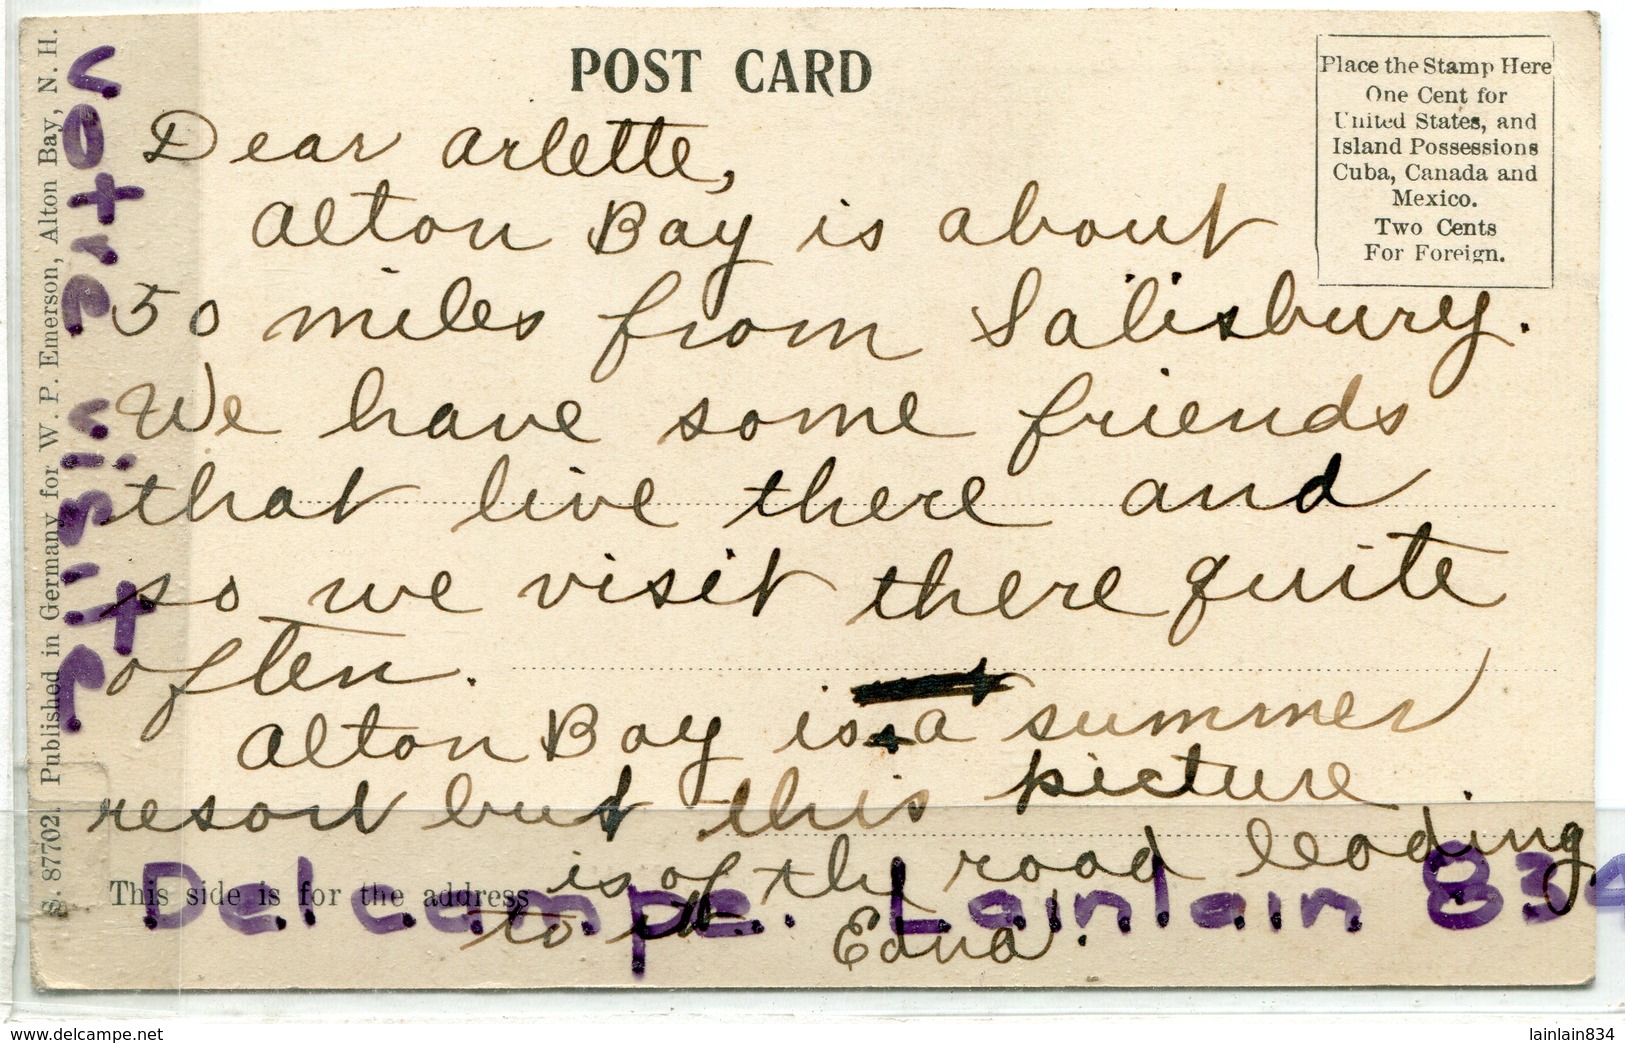 POST CARD
Place the Stamp Here
One Cent for
United States, and
Island Possessions
Cuba, Canada and
Mexico.
Two Cents
For Foreign.
Dear Arlette,
Alton Bay is about
50 miles from Salisbury.
We have some friends
that live there and
so we visit there quite
often.
Alton Bay is a summer
resort but this picture
is of the road leading
to it.
Edna.
This side is for the address
S. 87702. Published in Germany for W. P. Emerson, Alton Bay, N. H.
votre visite
Delcampe. Lainlain 834
www.delcampe.net
lainlain834